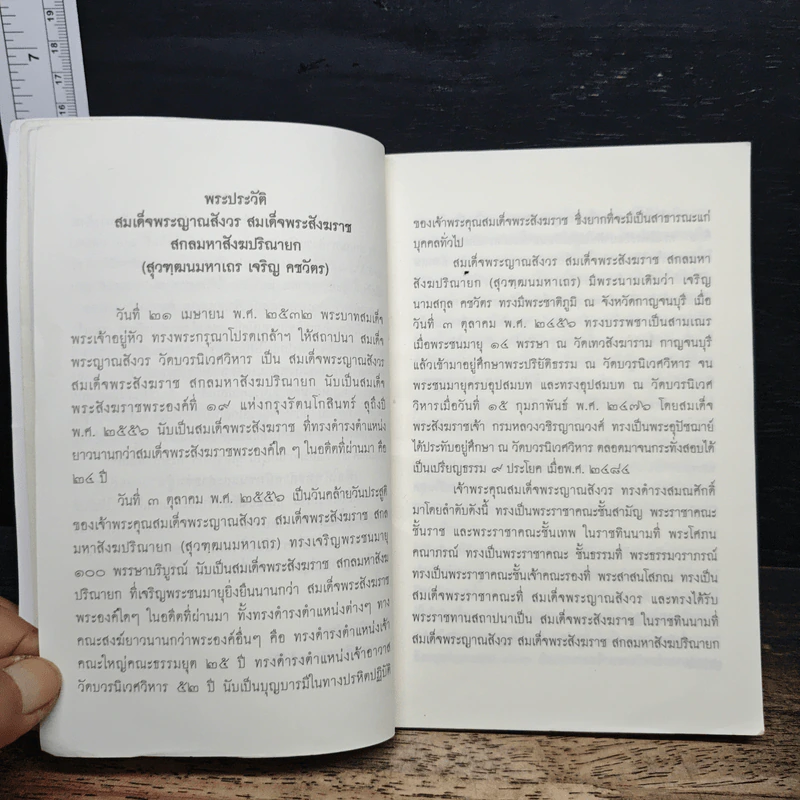 7
19
18
17
16
พระประวัติ
สมเด็จพระญาณสังวร สมเด็จพระสังฆราช
สกลมหาสังฆปริณายก
(สุวฑฺฒนมหาเถร เจริญ คชวัตร)
วันที่ ๒๑ เมษายน พ.ศ. ๒๕๓๒ พระบาทสมเด็จ
พระเจ้าอยู่หัว ทรงพระกรุณาโปรดเกล้าฯ ให้สถาปนา สมเด็จ
พระญาณสังวร วัดบวรนิเวศวิหาร เป็น สมเด็จพระญาณสังวร
สมเด็จพระสังฆราช สกลมหาสังฆปริณายก นับเป็นสมเด็จ
พระสังฆราชพระองค์ที่ ๑๙ แห่งกรุงรัตนโกสินทร์ สุถึงปี
พ.ศ. ๒๕๕๖ นับเป็นสมเด็จพระสังฆราช ที่ทรงดำรงตำแหน่ง
ยาวนานกว่าสมเด็จพระสังฆราชพระองค์ใด ๆ ในอดีตที่ผ่านมา คือ
๒๔ ปี
วันที่ ๓ ตุลาคม พ.ศ. ๒๕๕๖ เป็นวันคล้ายวันประสูติ
ของเจ้าพระคุณสมเด็จพระญาณสังวร สมเด็จพระสังฆราช สกล
มหาสังฆปริณายก (สุวฑฺฒนมหาเถร) ทรงเจริญพระชนมายุ
๑๐๐ พรรษาบริบูรณ์ นับเป็นสมเด็จพระสังฆราช สกลมหาสังฆ
ปริณายก ที่เจริญพระชนมายุยิ่งยืนนานกว่า สมเด็จพระสังฆราช
พระองค์ใดๆ ในอดีตที่ผ่านมา ทั้งทรงดำรงตำแหน่งต่างๆ ทาง
คณะสงฆ์ยาวนานกว่าพระองค์อื่นๆ คือ ทรงดำรงตำแหน่งเจ้า
คณะใหญ่คณะธรรมยุต ๒๕ ปี ทรงดำรงตำแหน่งเจ้าอาวาส
วัดบวรนิเวศวิหาร ๕๒ ปี นับเป็นบุญบารมีในทางปรหิตปฏิบัติ
ของเจ้าพระคุณสมเด็จพระสังฆราช ซึ่งยากที่จะมีเป็นสาธารณะแก่
บุคคลทั่วไป
สมเด็จพระญาณสังวร สมเด็จพระสังฆราช สกลมหา
สังฆปริณายก (สุวฑฺฒนมหาเถร) มีพระนามเดิมว่า เจริญ
นามสกุล คชวัตร ทรงมีพระชาติภูมิ ณ จังหวัดกาญจนบุรี เมื่อ
วันที่ ๓ ตุลาคม พ.ศ. ๒๔๕๖ ทรงบรรพชาเป็นสามเณร
เมื่อพระชนมายุ ๑๔ พรรษา ณ วัดเทวสังฆาราม กาญจนบุรี
แล้วเข้ามาอยู่ศึกษาพระปริยัติธรรม ณ วัดบวรนิเวศวิหาร จน
พระชนมายุครบอุปสมบท และทรงอุปสมบท ณ วัดบวรนิเวศ
วิหารเมื่อวันที่ ๑๕ กุมภาพันธ์ พ.ศ. ๒๔๗๖ โดยสมเด็จ
พระสังฆราชเจ้า กรมหลวงวชิรญาณวงศ์ ทรงเป็นพระอุปัชฌาย์
ได้ประทับอยู่ศึกษา ณ วัดบวรนิเวศวิหาร ตลอดมาจนกระทั่งสอบได้
เป็นเปรียญธรรม ๙ ประโยค เมื่อพ.ศ. ๒๔๘๔
เจ้าพระคุณสมเด็จพระญาณสังวร ทรงดำรงสมณศักดิ์
มาโดยลำดับดังนี้ ทรงเป็นพระราชาคณะชั้นสามัญ พระราชาคณะ
ชั้นราช และพระราชาคณะชั้นเทพ ในราชทินนามที่ พระโศภน
คณาภรณ์ ทรงเป็นพระราชาคณะ ชั้นธรรมที่ พระธรรมวราภรณ์
ทรงเป็นพระราชาคณะชั้นเจ้าคณะรองที่ พระสาสนโสภณ ทรงเป็น
สมเด็จพระราชาคณะที่ สมเด็จพระญาณสังวร และทรงได้รับ
พระราชทานสถาปนาเป็น สมเด็จพระสังฆราช ในราชทินนามที่
สมเด็จพระญาณสังวร สมเด็จพระสังฆราช สกลมหาสังฆปริณายก